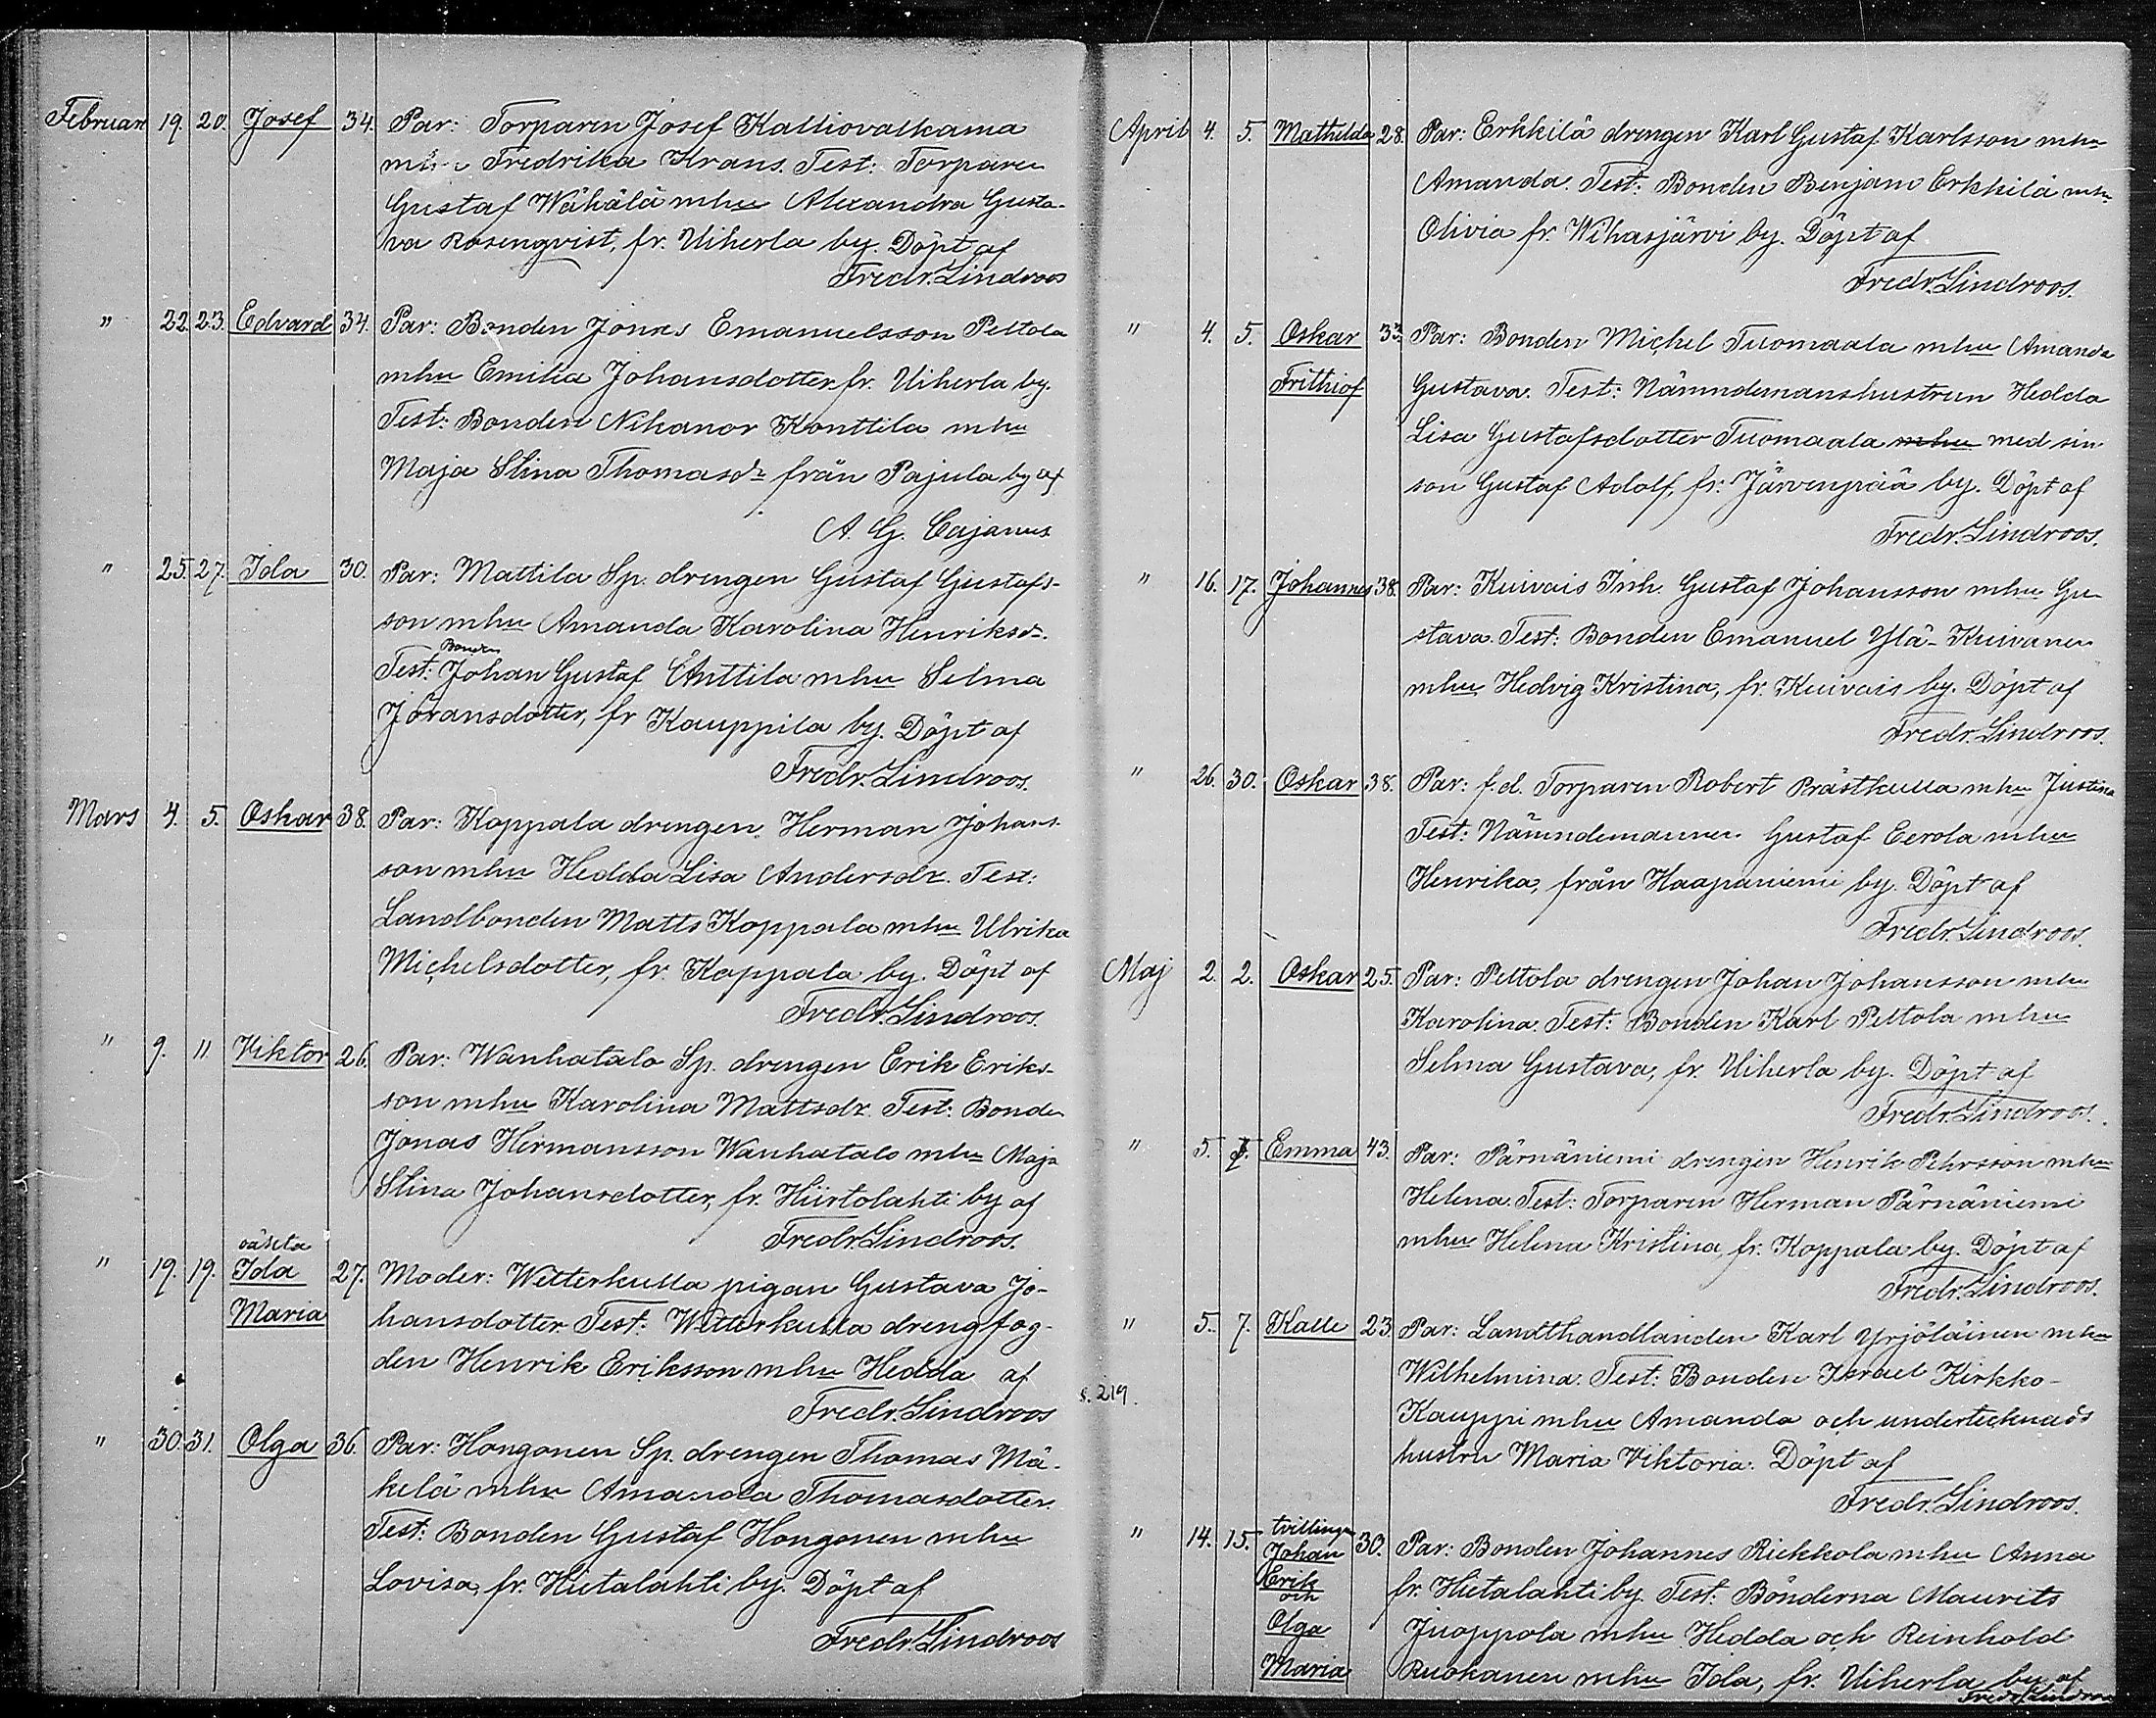 Februari 19. 20. Josef 34. Par: Torparen Josef Kalliovalkama
mhu Fredrika Krans. Test: Torparen
Gustaf Wähälä mhu Alexandra Gusta-
va Rosenqvist, fr. Uiherla by. Döpt af
Fredr. Lindroos
" 22. 23. Edvard 34. Par: Bonden Jonas Emanuelsson Peltola
mhu Emilia Johansdotter fr. Uiherla by.
Test: Bonden Nikanor Konttila mhu
Maja Stina Thomasdr från Pajula by af
A. G. Cajanus
" 25. 27. Ida 30. Par: Mattila Sp. drengen Gustaf Gustafs-
son mhu Amanda Karolina Henriksdr.
Bonden
Test: Johan Gustaf Anttila mhu Selma
Göransdotter, fr Kauppila by. Döpt af
Fredr. Lindroos.
Mars 4. 5. Oskar 38. Par: Koppala drengen Herman Johans-
son mhu Hedda Lisa Andersdr. Test:
Landbonden Matts Koppala mhu Ulrika
Michelsdotter, fr. Koppala by. Döpt af
Fredr. Lindroos.
" 9. 11 Viktor 26. Par: Wanhatalo Sp. drengen Erik Eriks-
son mhu Karolina Mattsdr. Test: Bonden
Jonas Hermansson Wanhatalo mhu Maja
Stina Johansdotter, fr. Hiirtolahti by af
Fredr. Lindroos.
oäkta
" 19. 19. Ida 27. Moder: Wetterkulla pigan Gustava Jo-
Maria hansdotter. Test: Wetterkulla drengfog-
den Henrik Eriksson mhu Hedda af
Fredr. Lindroos
" 30. 31. Olga 36. Par: Hongonen Sp. drengen Thomas Mä-
kelä mhu Amanda Thomasdotter.
Test: Bonden Gustaf Hongonen mhu
Lovisa, fr. Hietalahti by. Döpt af
Fredr. Lindroos
April 4. 5. Mathilda 28. Par: Erkkilä drengen Karl Gustaf Karlsson mhu
Amanda. Test: Bonden Benjam Erkkilä mhu
Olivia fr. Wihasjärvi by. Döpt af
Fredr. Lindroos.
" 4. 5. Oskar 33. Par: Bonden Michel Tuomaala mhu Amanda
Frithiof Gustava. Test: Nämndemanshustrun Hedda
Lisa Gustafsdotter Tuomaala mhu med sin
son Gustaf Adolf, fr: Järvenpää by. Döpt af
Fredr. Lindroos.
" 16. 17. Johannes 38. Par: Kuivais Inh. Gustaf Johansson mhu Gu-
stava. Test: Bonden Emanuel Ylä-Kuivanen
mhu Hedvig Kristina, fr. Kuivais by. Döpt af
Fredr. Lindroos.
" 26. 30. Oskar 38. Par: f.d. Torparen Robert Prästkulla mhu Justina
Test: Nämndemannen Gustaf Eerola mhu
Henrika, från Haapaniemi by. Döpt af
Fredr. Lindroos.
Maj 2. 2. Oskar 25. Par: Peltola drengen Johan Johansson mhu
Karolina. Test: Bonden Karl Peltola mhu
Selma Gustava, fr. Uiherla by. Döpt af
Fredr. Lindroos.
" 5. 7. Emma 43. Par: Pärnäniemi drengen Henrik Pehrsson mhu
Helena. Test: Torparen Herman Pärnäniemi
mhu Helena Kristina, fr. Koppala by. Döpt af
Fredr. Lindroos.
" 5. 7. Kalle 23. Par: Landthandlanden Karl Yrjöläinen mhu
Wilhelmina. Test: Bonden Israel Kirkko-
s. 219. Kauppi mhu Amanda och undertecknads
hustru Maria Viktoria. Döpt af
Fredr. Lindroos.
tvillingar
" 14. 15. Johan 30. Par: Bonden Johannes Riekkola mhu Anna
Erik fr. Hietalahti by. Test: Bönderna Maurits
och
Olga Juoppola mhu Hedda och Reinhold
Maria Ruokanen mhu Ida, fr. Uiherla by af
Fredr. Lindroos